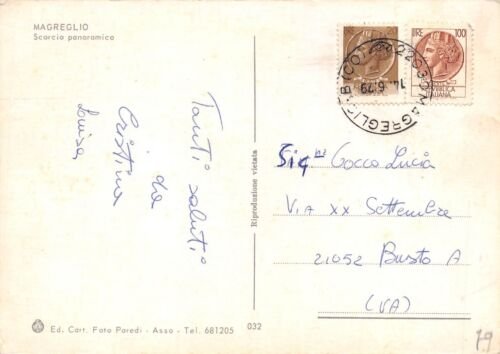 MAGREGLIO
Scorcio panoramico
Tanti saluti
da
Cristina
Luisa
Ed. Cart. Foto Paredi - Asso - Tel. 681205
032
Riproduzione vietata
LIRE 100
ITALIANA
22030 MAGREGLIO
14.6.79
Sig.na Cocco Lucia
VIA XX Settembre
21052 Busto A
(VA)
79